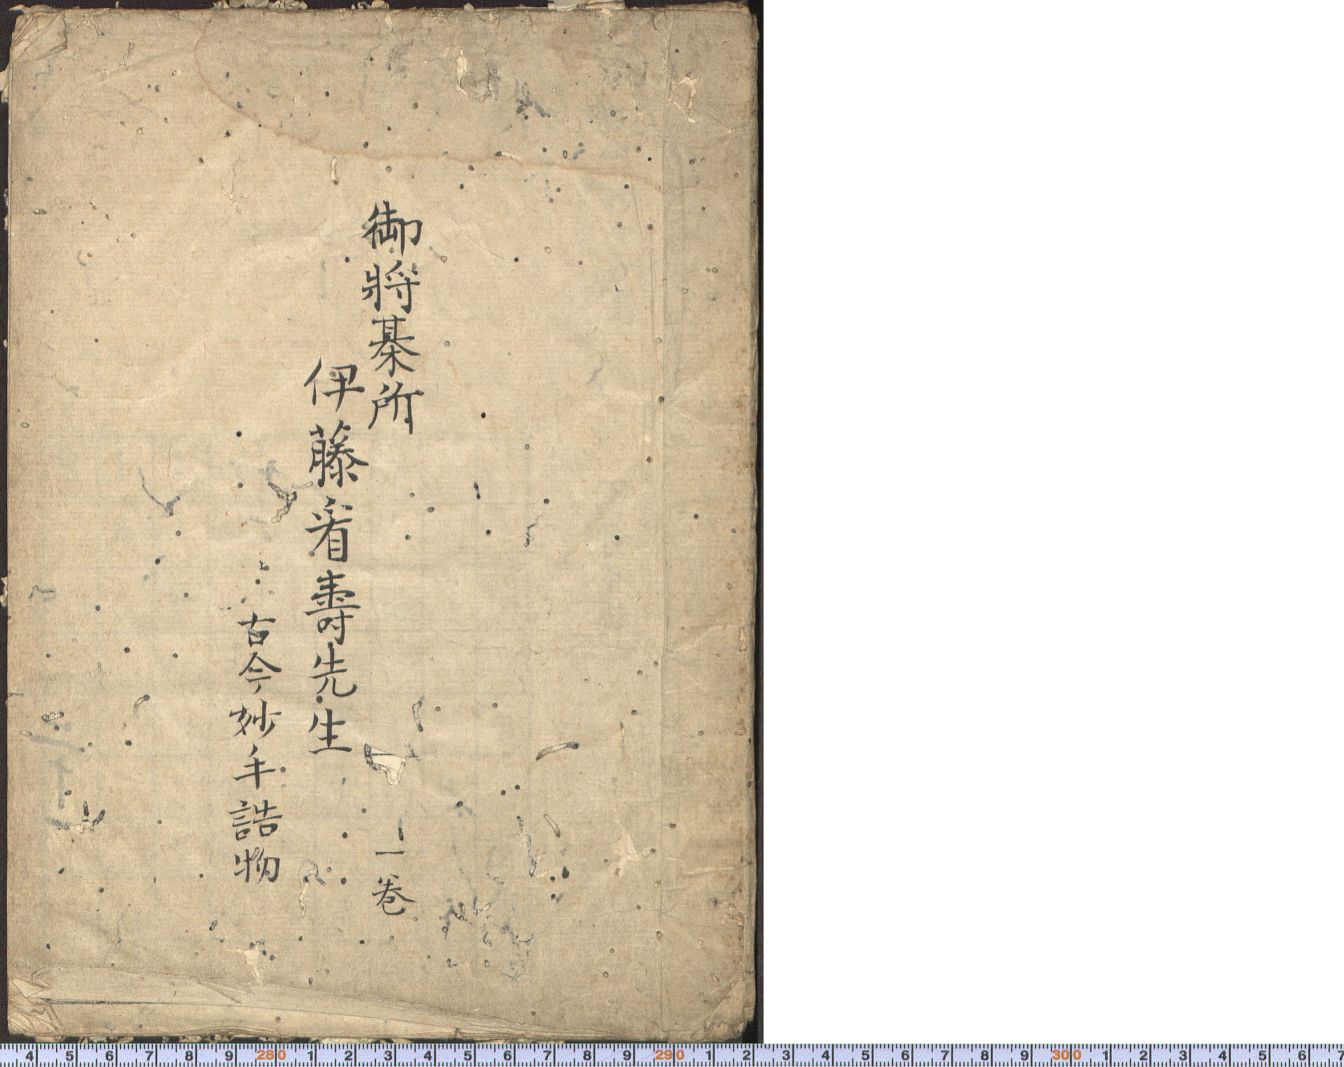 御將棊所
一巻
伊藤看壽先生
古今妙手詰物
4 5 6 7 8 9 280 1 2 3 4 5 6 7 8 9 290 1 2 3 4 5 6 7 8 9 300 1 2 3 4 5 6 7